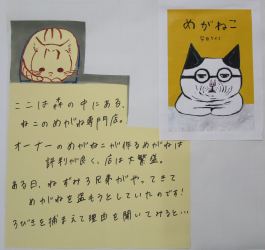 めがねこ
ここは森の中にある、
ねこのめがね専門店。
オーナーのめがねこが作るめがねは
評判が良く、店は大繁盛。
ある日、ねずみ3兄弟がやってきて
めがねを盗もうとしていたのです！
3びきを捕まえて理由を聞いてみると…